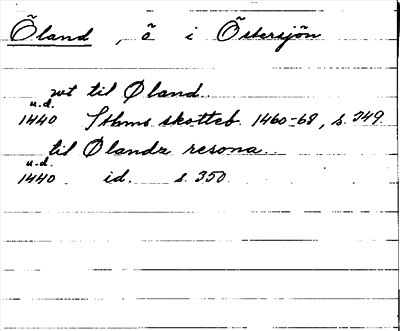 Öland , ö i Östersjön
wt til Øland
u.d.
1440 Sthms skotteb. 1460-68, s. 349.
til Ølandz resona
u.d.
1440 id. s. 350